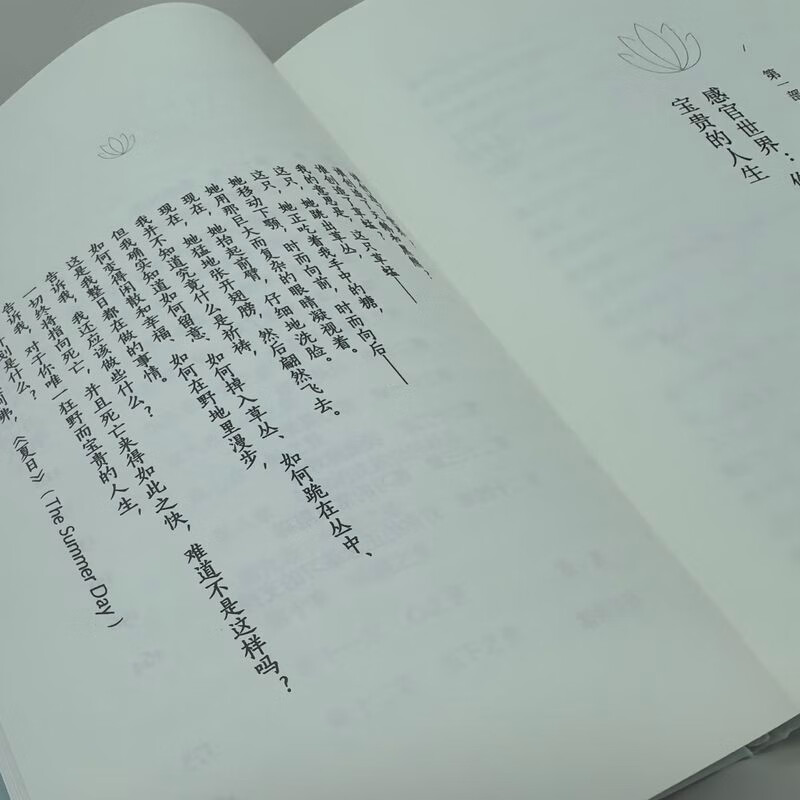 这只草蜢——
她蹦出草丛，
这只，她正吃着我手中的糖，
她移动下颚，时而向前，时而向后——
她用那巨大而复杂的眼睛凝视着。
现在，她抬起前臂，仔细地洗脸。
现在，她猛地张开翅膀，然后翩然飞去。
我并不知道究竟什么是祈祷，
但我确实知道如何留意、如何掉入草丛、如何跪在丛中、
如何变得闲散和幸福、如何在野地里漫步，
这是我整日都在做的事情。
告诉我，我还应该做些什么？
一切终将指向死亡，并且死亡来得如此之快，难道不是这样吗？
告诉我，对于你唯一狂野而宝贵的人生，
划是什么？
弗，《夏日》（The Summer Day）
第一部
感官世界：
宝贵的人生